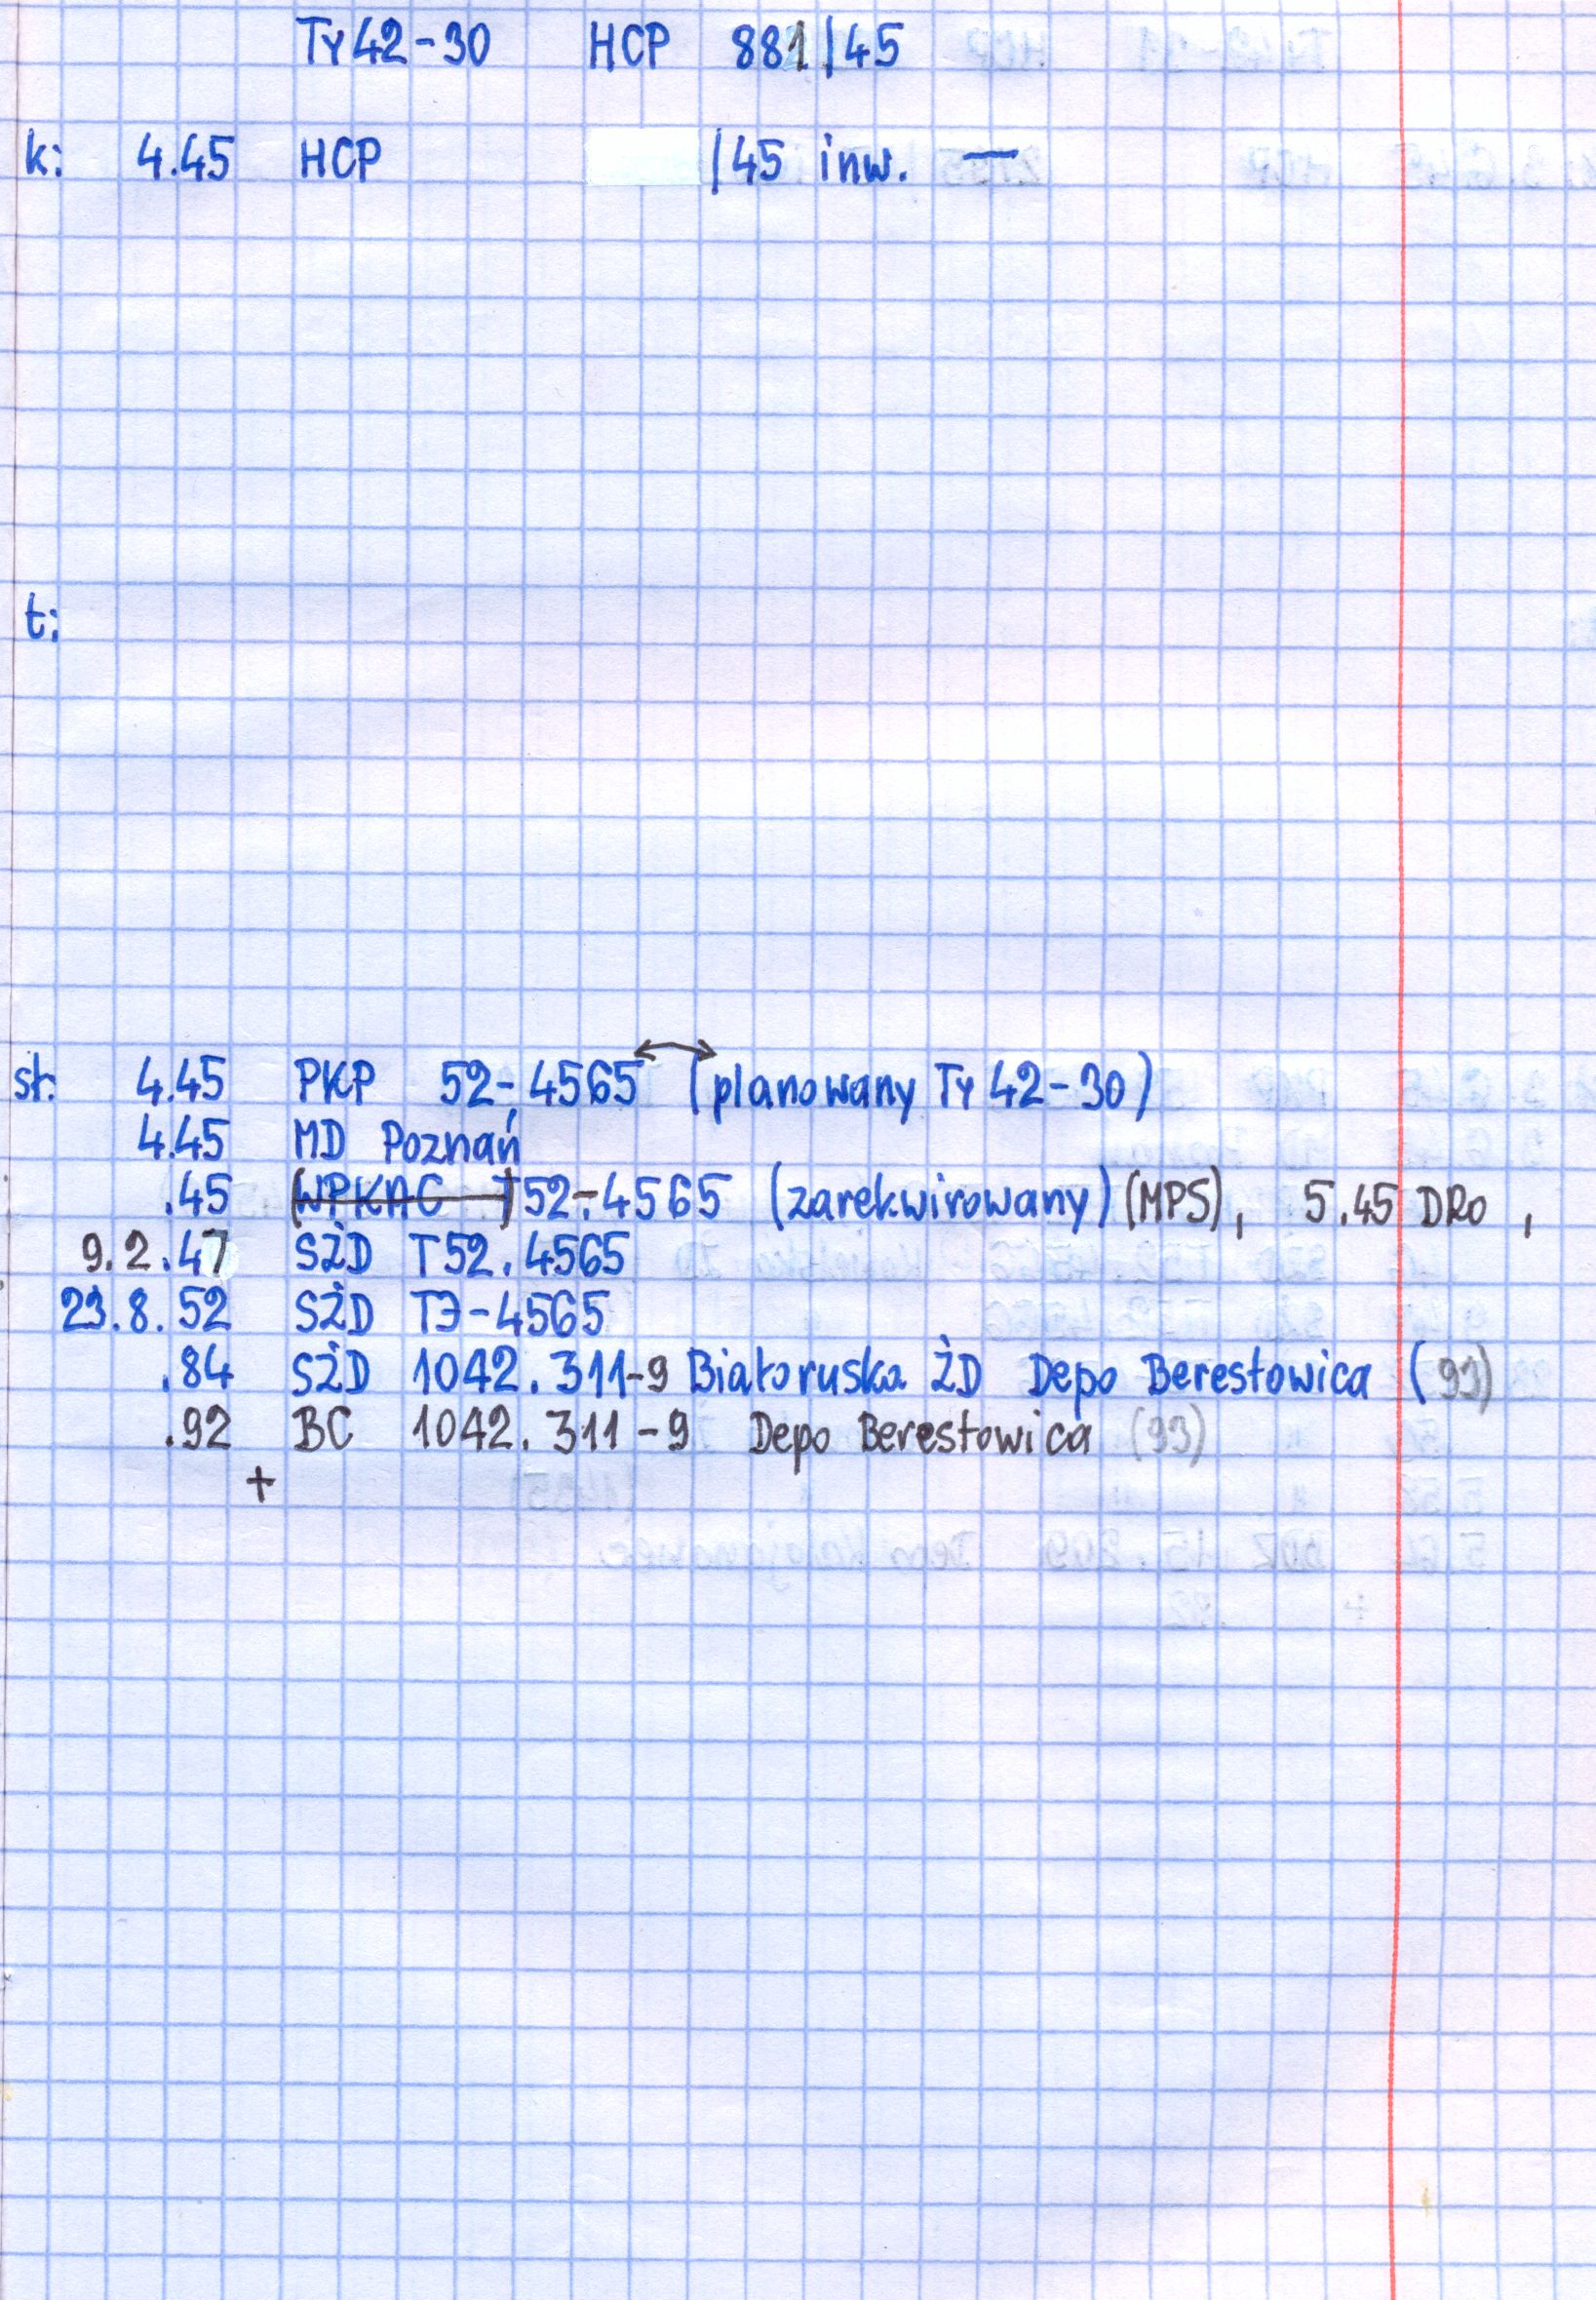 Ty42-30 HCP 881/45
k: 4.45 HCP /45 inw. —
t:
st: 4.45 PKP 52-4565 (planowany Ty42-30)
4.45 MD Poznań
.45 (WPKAC T52-4565 (zarekwirowany) (MPS), 5.45 DRo ,
9.2.47 SŻD T52.4565
23.8.52 SŻD TЭ-4565
.84 SŻD 1042.311-9 Białoruska ŻD Depo Berestowica (93)
.92 BC 1042.311-9 Depo Berestowica (93)
+